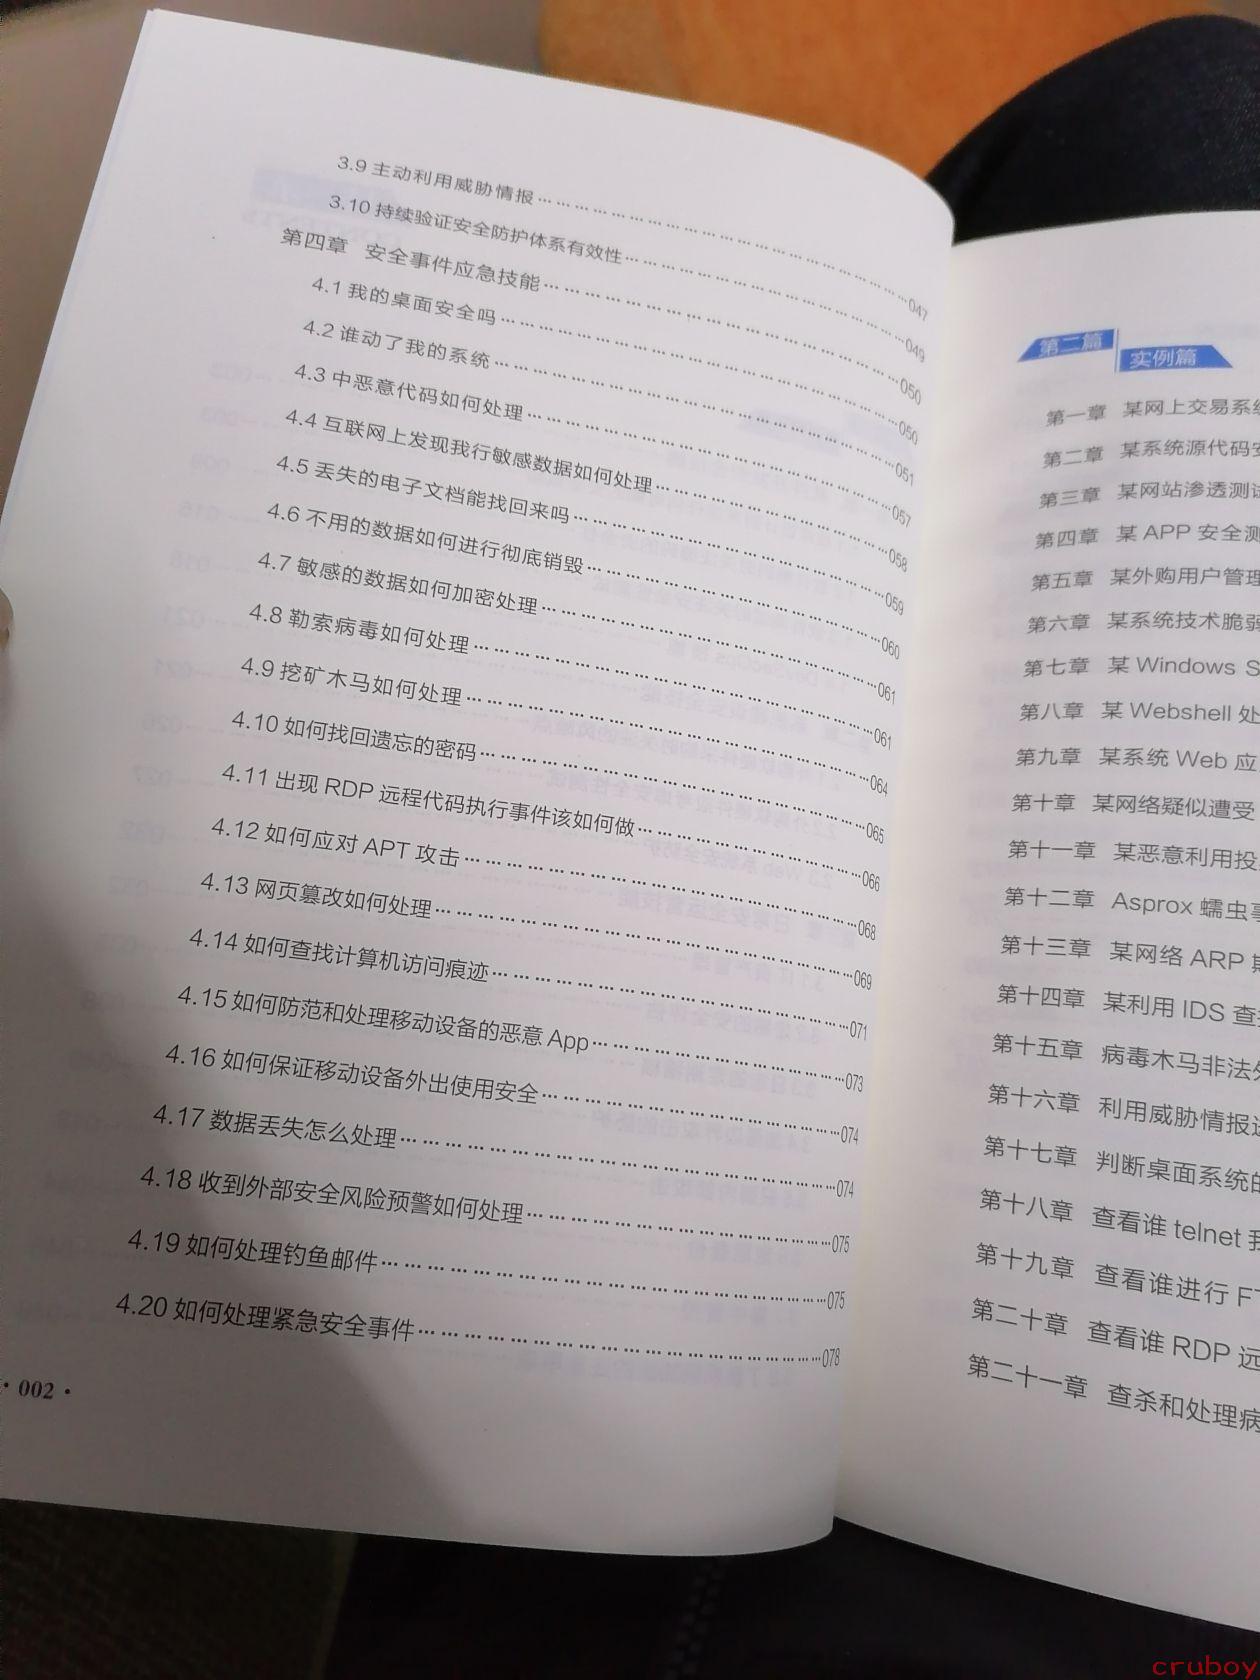 3.9 主动利用威胁情报 …… 047
3.10 持续验证安全防护体系有效性 …… 049
第四章 安全事件应急技能 …… 050
4.1 我的桌面安全吗 …… 050
4.2 谁动了我的系统 …… 051
4.3 中恶意代码如何处理 …… 057
4.4 互联网上发现我行敏感数据如何处理 …… 058
4.5 丢失的电子文档能找回来吗 …… 059
4.6 不用的数据如何进行彻底销毁 …… 060
4.7 敏感的数据如何加密处理 …… 061
4.8 勒索病毒如何处理 …… 061
4.9 挖矿木马如何处理 …… 064
4.10 如何找回遗忘的密码 …… 065
4.11 出现 RDP 远程代码执行事件该如何做 …… 066
4.12 如何应对 APT 攻击 …… 068
4.13 网页篡改如何处理 …… 069
4.14 如何查找计算机访问痕迹 …… 071
4.15 如何防范和处理移动设备的恶意 App …… 073
4.16 如何保证移动设备外出使用安全 …… 074
4.17 数据丢失怎么处理 …… 074
4.18 收到外部安全风险预警如何处理 …… 075
4.19 如何处理钓鱼邮件 …… 075
4.20 如何处理紧急安全事件 …… 078
· 002 ·
第二篇 实例篇
第一章 某网上交易系统
第二章 某系统源代码
第三章 某网站渗透测试
第四章 某 APP 安全测
第五章 某外购用户管理
第六章 某系统技术脆弱
第七章 某 Windows S
第八章 某 Webshell 处
第九章 某系统 Web 应
第十章 某网络疑似遭受
第十一章 某恶意利用投
第十二章 Asprox 蠕虫事
第十三章 某网络 ARP 欺
第十四章 某利用 IDS 查
第十五章 病毒木马非法外
第十六章 利用威胁情报进
第十七章 判断桌面系统的
第十八章 查看谁 telnet 我
第十九章 查看谁进行 FT
第二十章 查看谁 RDP 远
第二十一章 查杀和处理病
cruboy